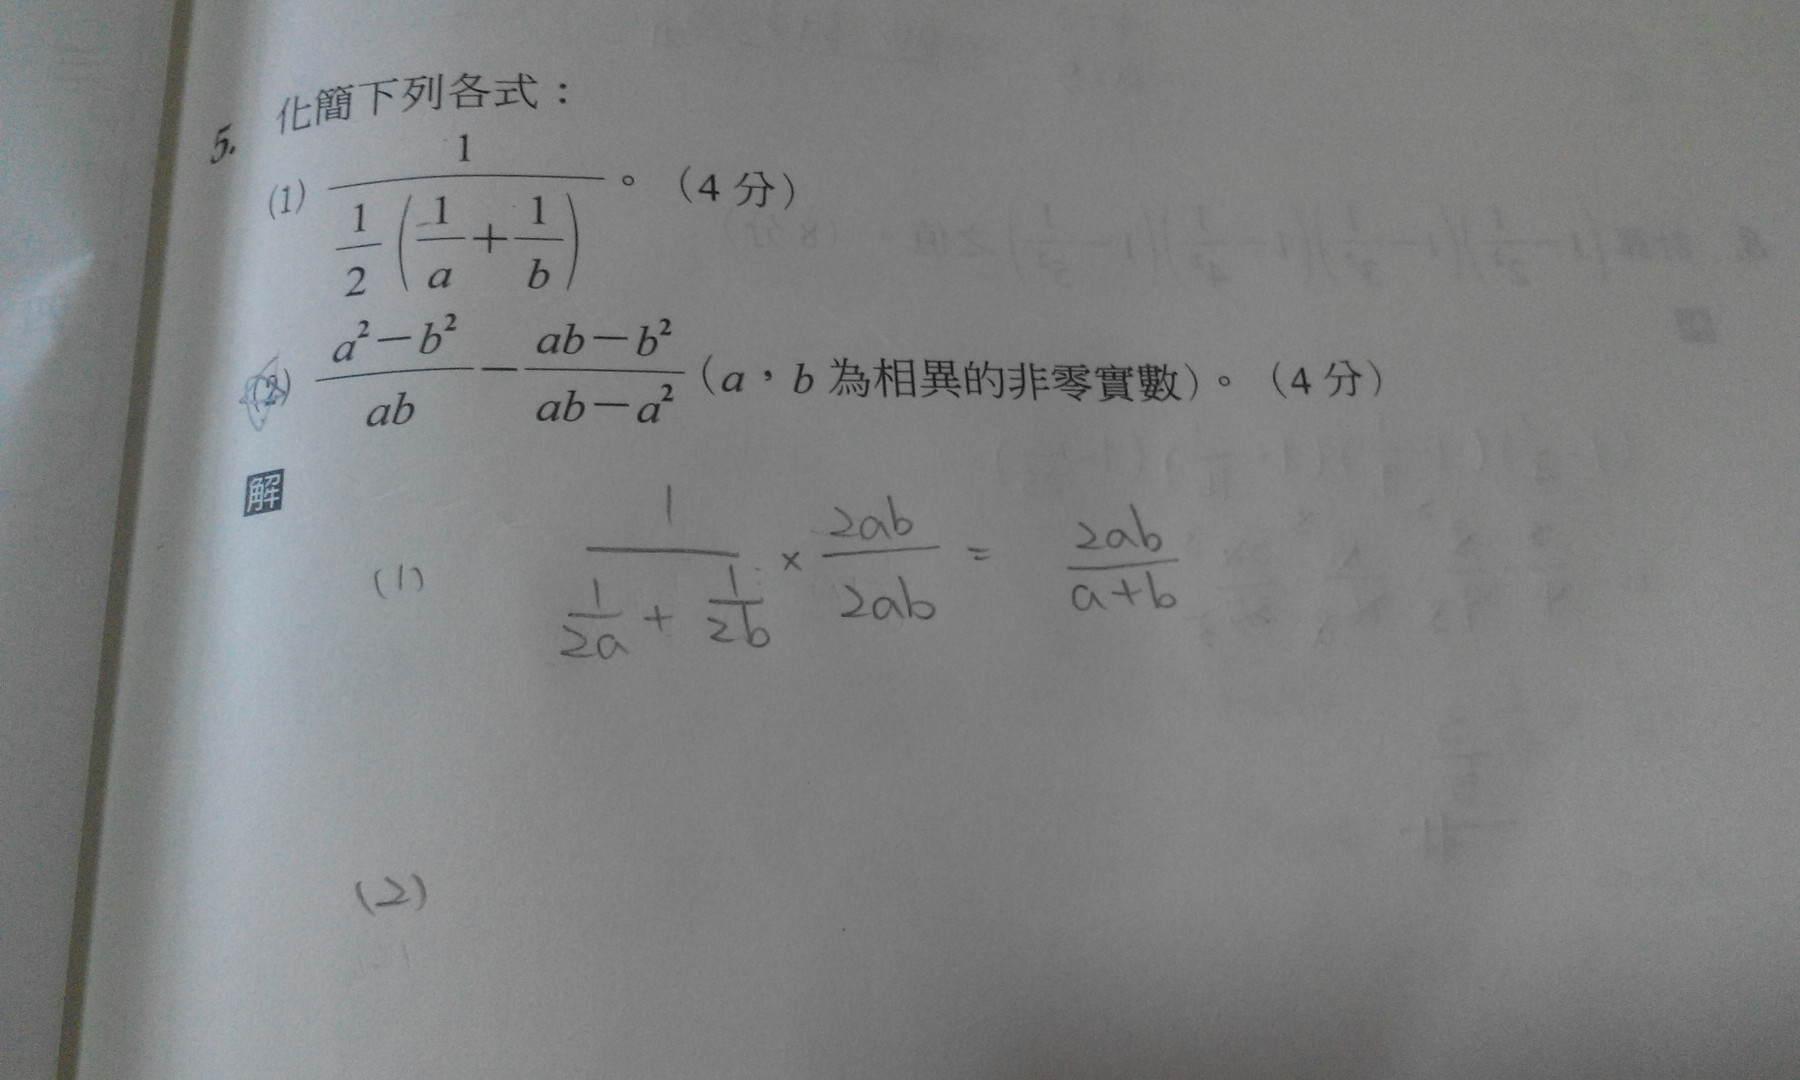 5. 化簡下列各式：
(1) \frac{1}{\frac{1}{2}\left(\frac{1}{a}+\frac{1}{b}\right)}。（4 分）
(2) \frac{a²－b²}{ab}－\frac{ab－b²}{ab－a²}（a，b 為相異的非零實數）。（4 分）
解
(1) \frac{1}{\frac{1}{2a}+\frac{1}{2b}} × \frac{2ab}{2ab} = \frac{2ab}{a+b}
(2)